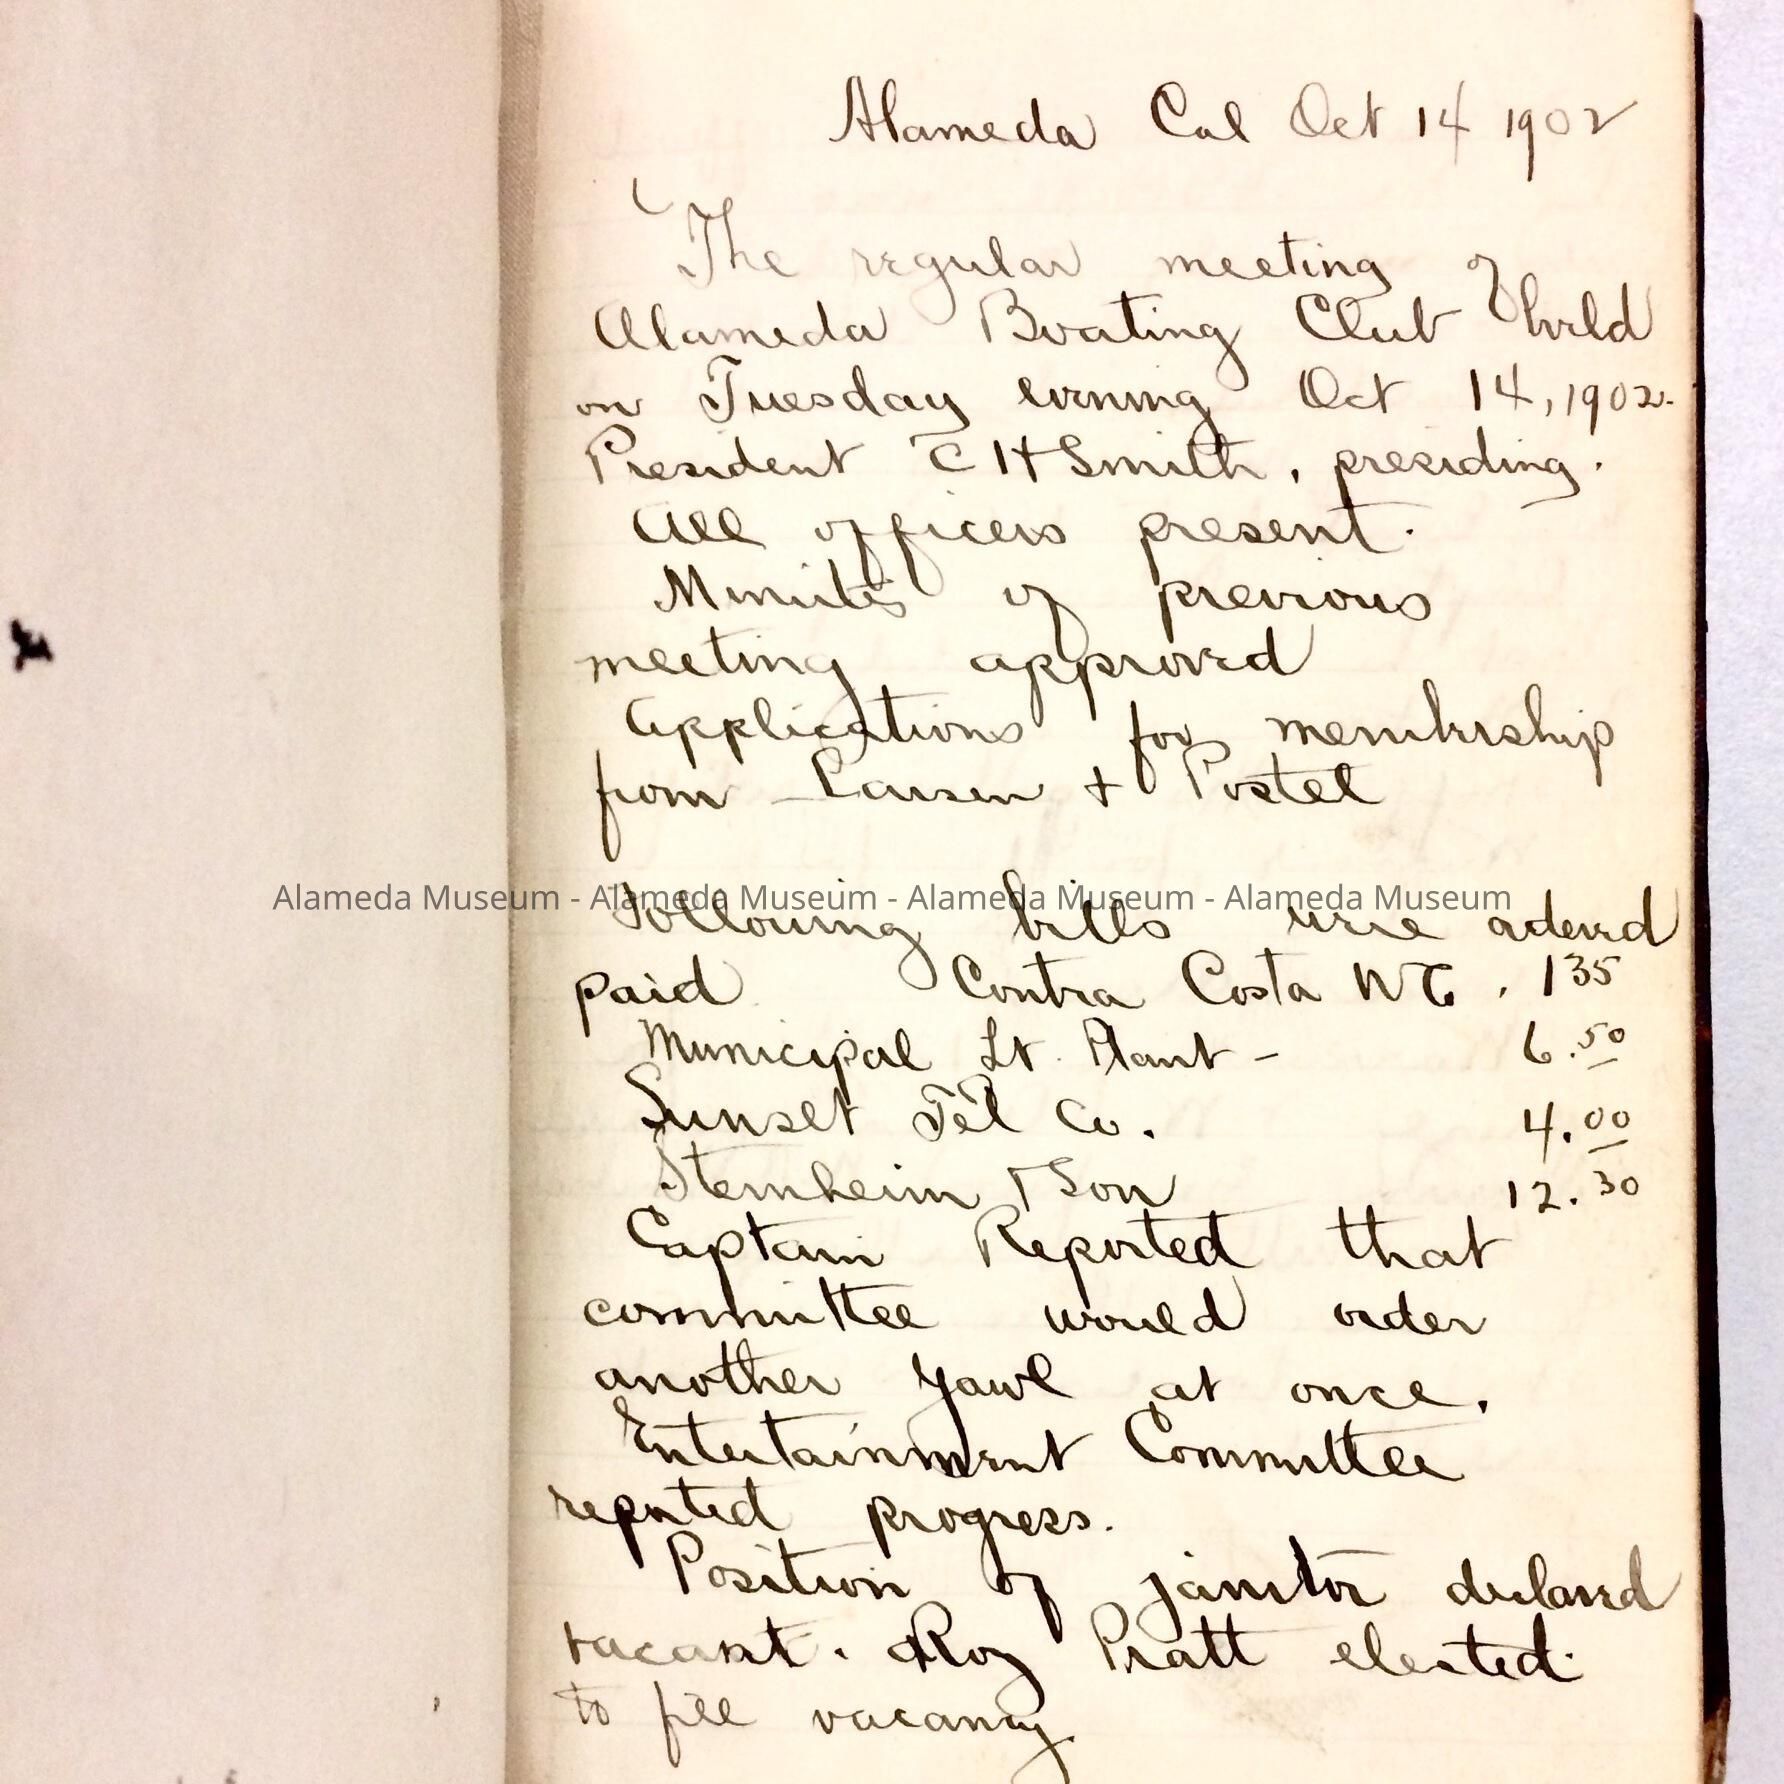 Alameda Cal Oct 14 1902
The regular meeting of
Alameda Boating Club held
on Tuesday evening Oct 14, 1902.
President C H Smith, presiding.
All officers present.
Minutes of previous
meeting approved
Applications for membership
from Larsen + Postel
Alameda Museum - Alameda Museum - Alameda Museum - Alameda Museum
Following bills were orderd
paid Contra Costa W Co. 1 35
Municipal Lt. Plant - 6.50
Sunset Tel Co. 4.00
Sternheim + Son 12.30
Captain Reported that
committee would order
another yawl at once.
Entertainment Committee
reported progress.
Position of janitor declared
vacant. Roy Pratt elected
to fill vacancy.